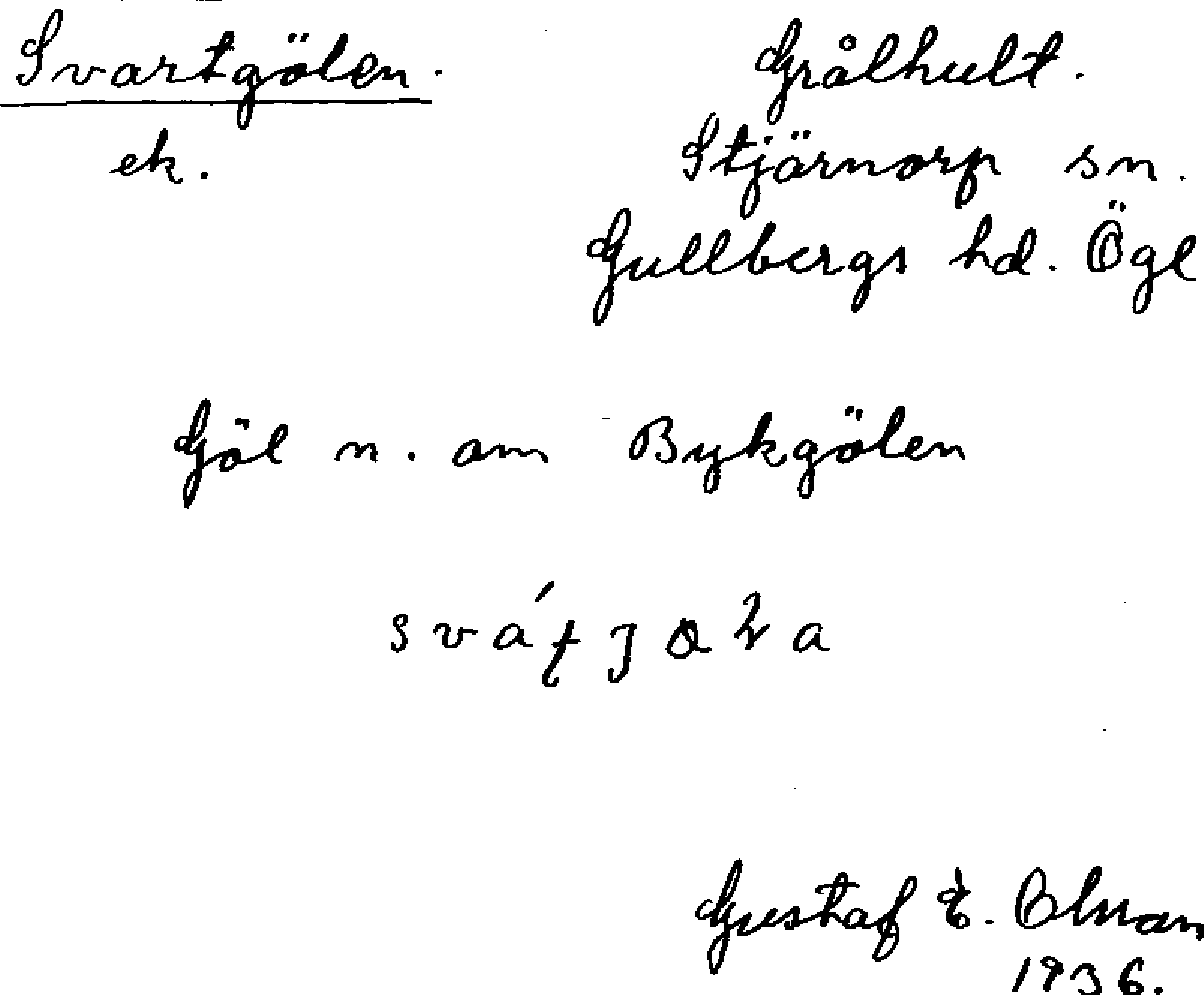 Svartgölen.
ek.
Grålhult.
Stjärnorp sn.
Gullbergs hd. Ögl
Göl n. om Bykgölen
Gustaf E. Olman
1936.